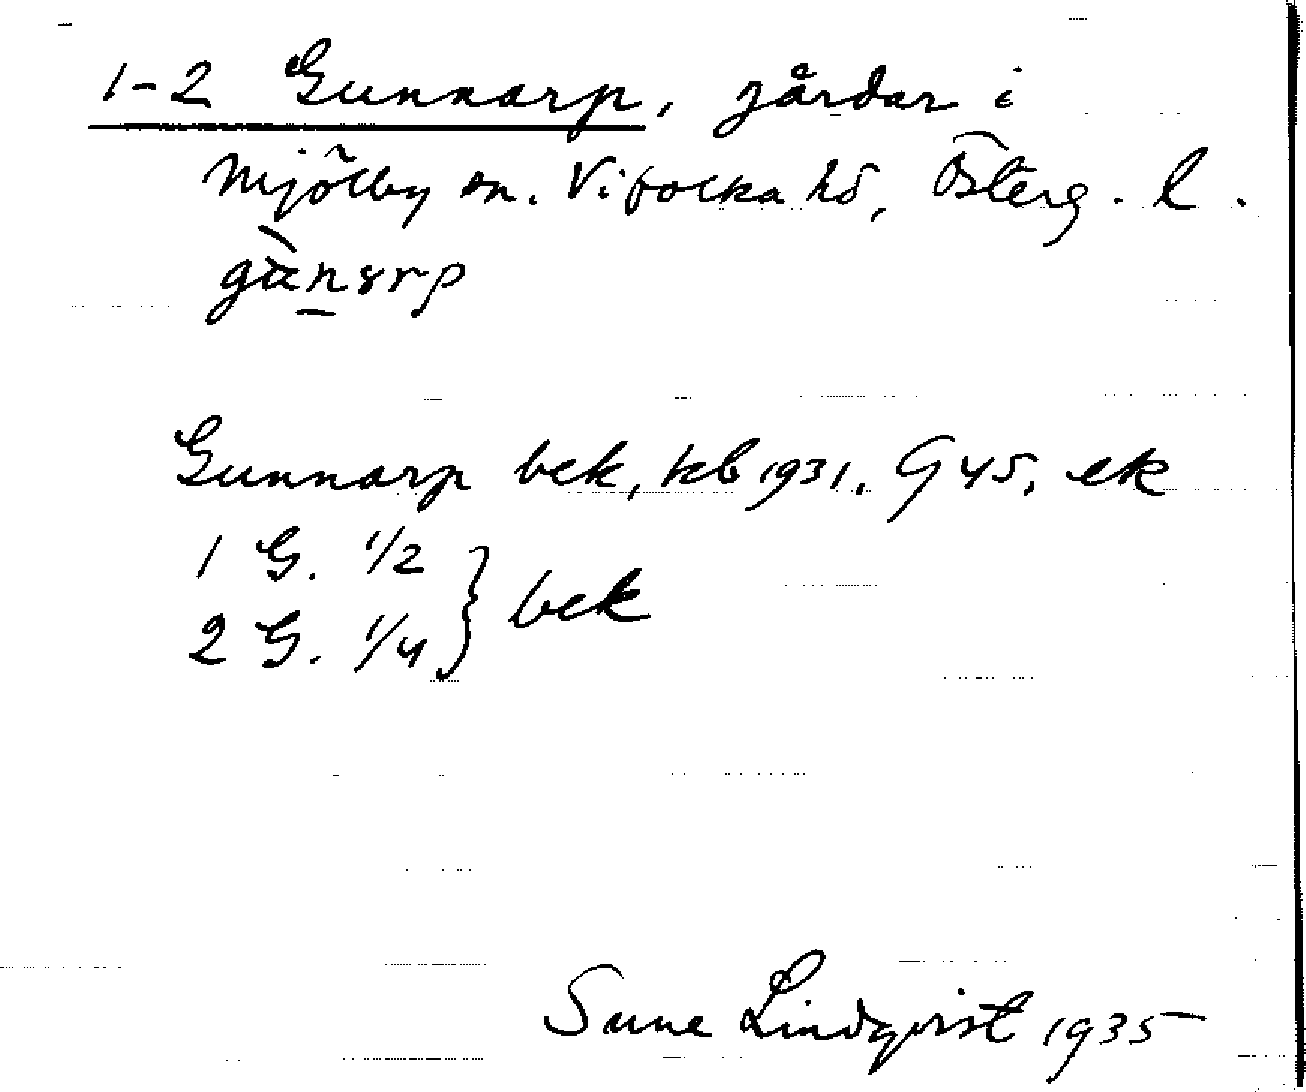 1-2 Gunnarp, gårdar i
Mjölby sn. Vifolka hd, Österg. l.
Gunnarp bek, kb 1931. G 45, ek
1 G. 1/2
2 G. 1/4 } bek
Sune Lindqvist 1935